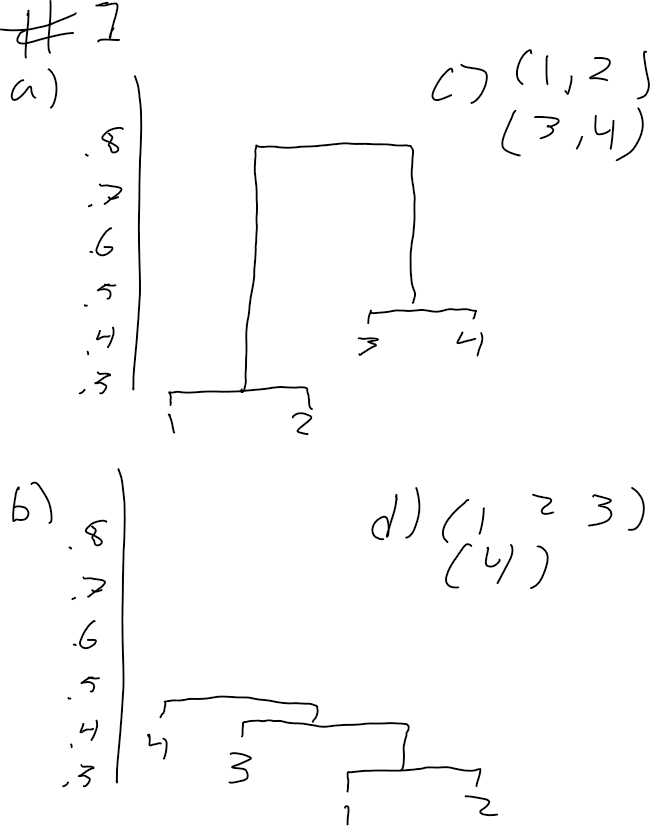 # 1
a)
.8
.7
.6
.5
.4
.3
3 4
1 2
c) (1, 2)
(3, 4)
b)
.8
.7
.6
.5
.4
.3
4
3
1 2
d) (1 2 3)
(4)